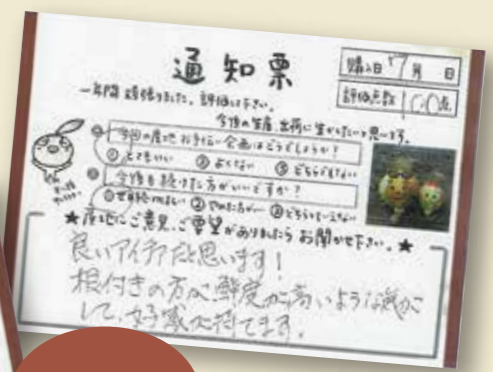 通知票
購入日 17月 日
評価点数 100点
一年間頑張りました。評価して下さい。
今後の生産、出荷に生かしたいと思います。
今回の産地お手伝い企画はどうでしょうか？
①とてもいい ②よくない ③どちらでもない
今後も続けた方がいいですか？
①ぜひ続けてほしい ②やめた方が ③どちらともいえない
★産地にご意見、ご要望がありましたらお聞かせ下さい。★
良いアイデアだと思います！
根付きの方が、鮮度が高いような気が
して、好感が持てます。